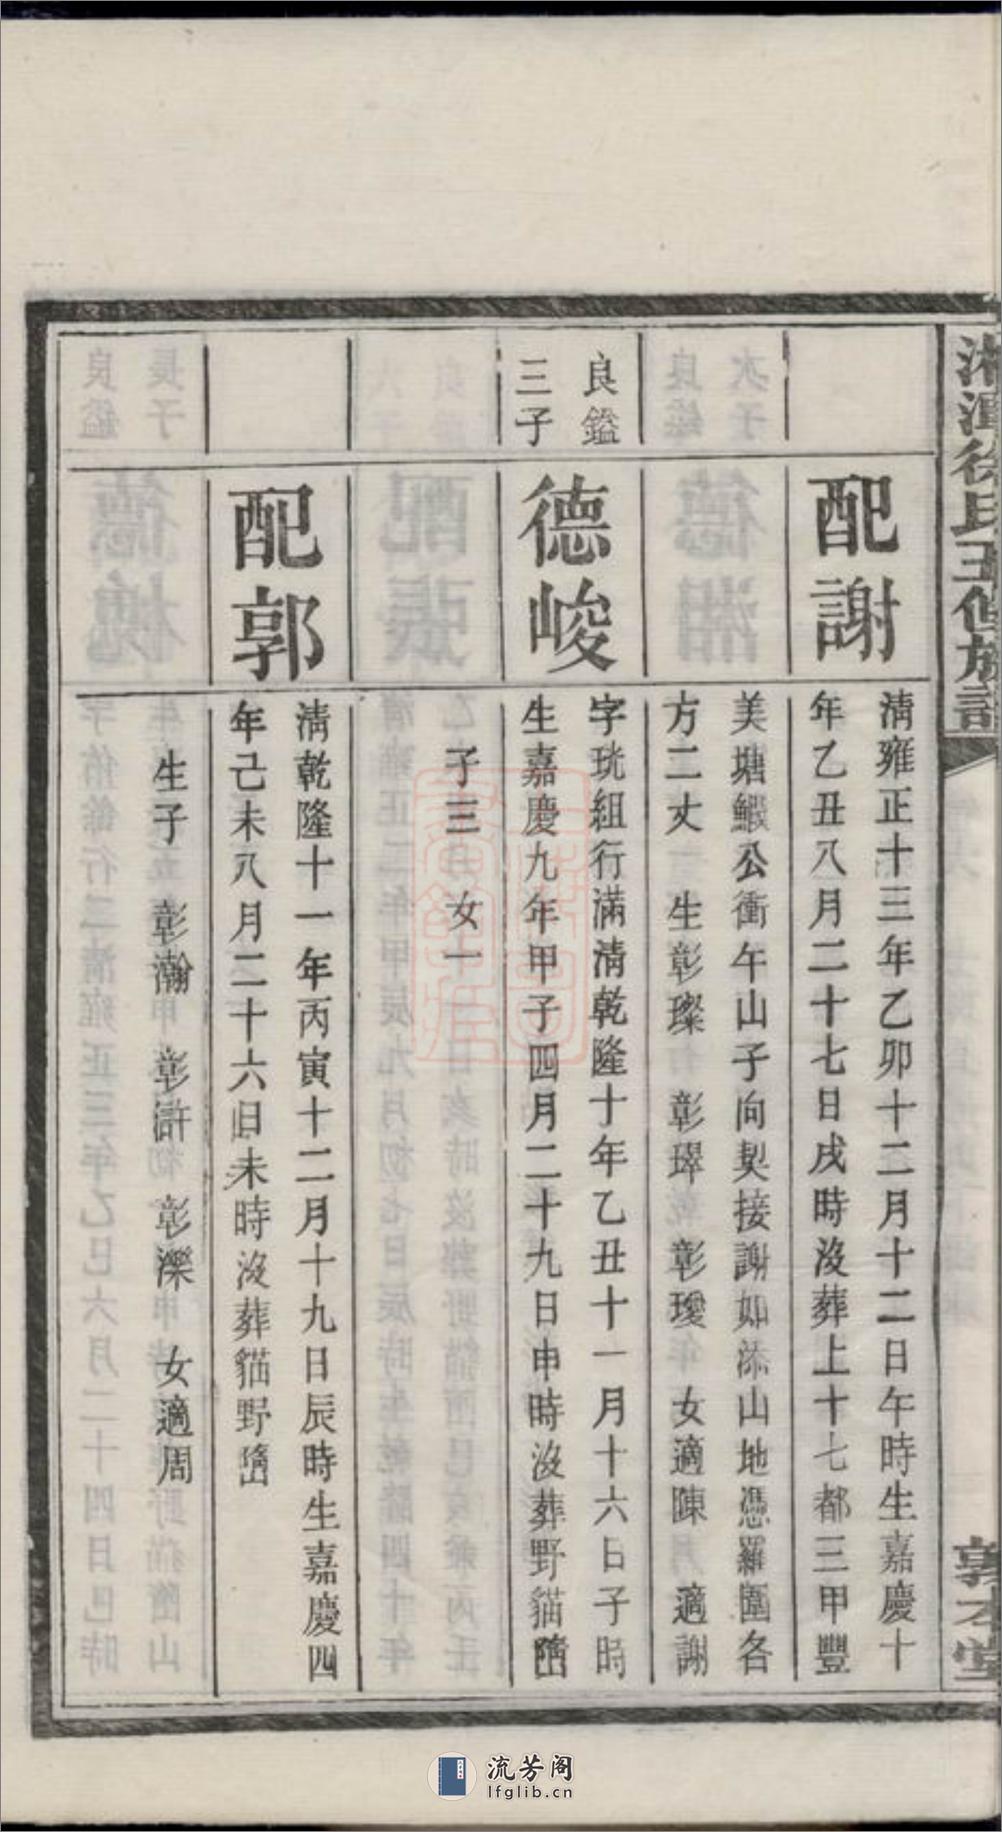 湘潭徐氏五修族譜
敦本堂
配謝
清雍正十三年乙卯十二月十二日午時生嘉慶十
年乙丑八月二十七日戌時沒葬上十七都三甲豐
美塘鰕公衝午山子向契接謝如添山地憑羅圍各
方二丈 生彰璨 彰璻 彰瓊 女適陳 適謝
良鎰
三子
德峻
字珖組行滿清乾隆十年乙丑十一月十六日子時
生嘉慶九年甲子四月二十九日申時沒葬野貓
子三 女一
配郭
清乾隆十一年丙寅十二月十九日辰時生嘉慶四
年己未八月二十六日未時沒葬貓野
生子 彰瀚 彰滸 彰濼 女適周
流芳阁
lfglib.cn